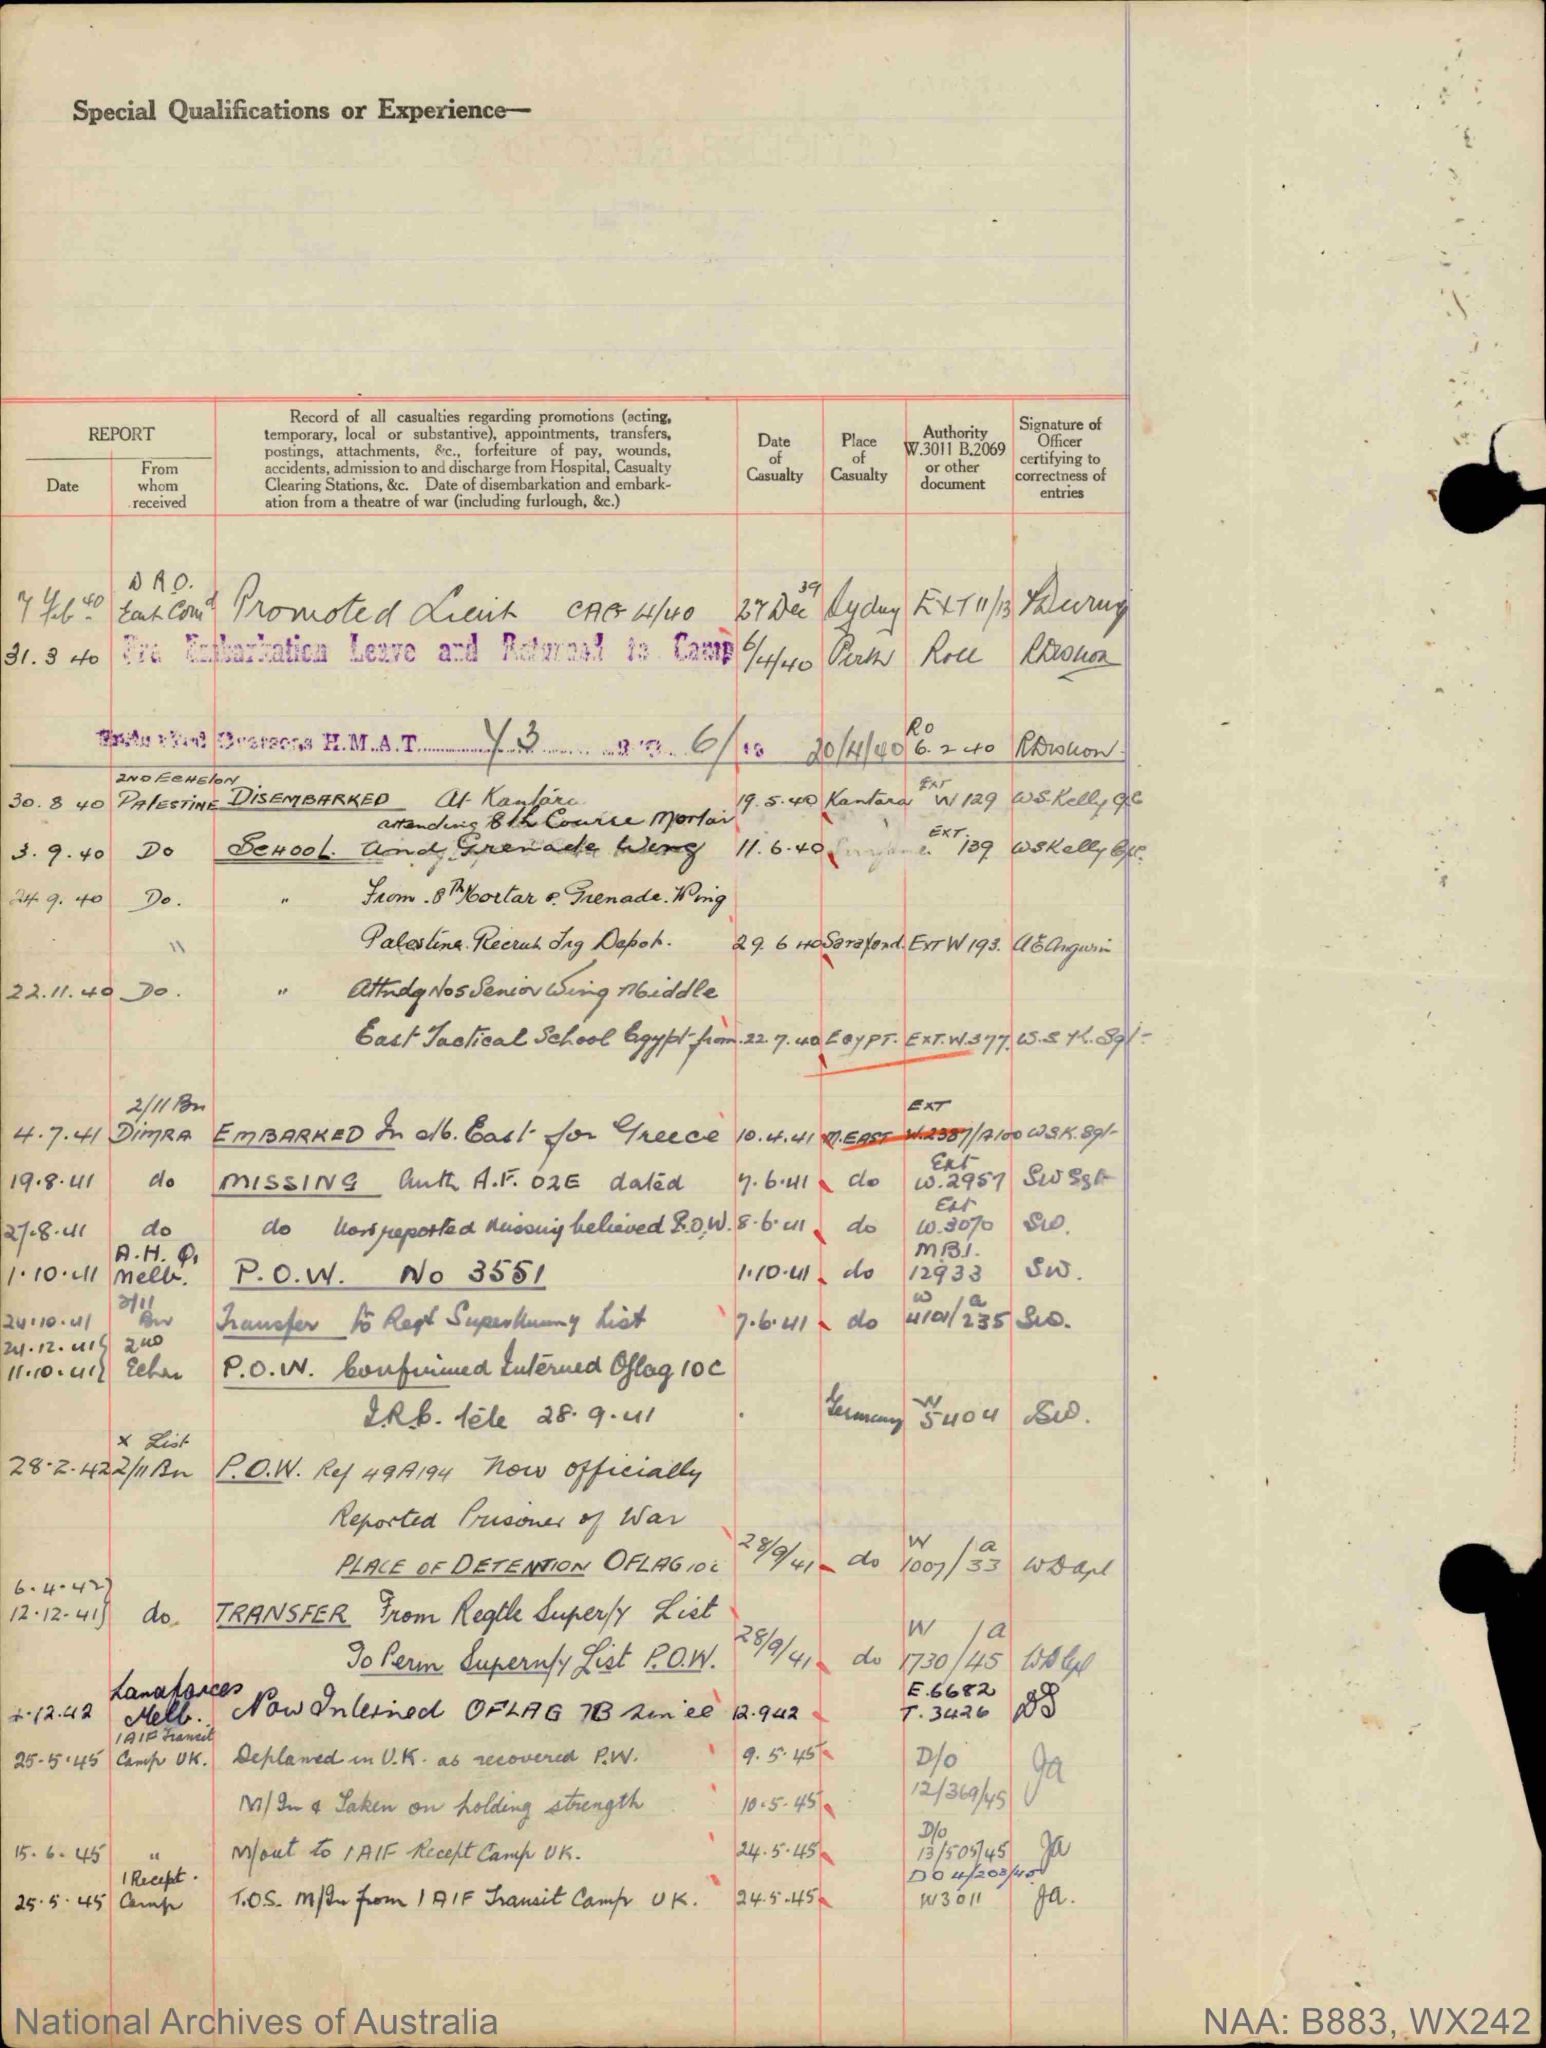 Special Qualifications or Experience—
REPORT
Date
From whom received
Record of all casualties regarding promotions (acting,
temporary, local or substantive), appointments, transfers,
postings, attachments, &c., forfeiture of pay, wounds,
accidents, admission to and discharge from Hospital, Casualty
Clearing Stations, &c. Date of disembarkation and embark-
ation from a theatre of war (including furlough, &c.)
Date of Casualty
Place of Casualty
Authority W.3011 B.2069 or other document
Signature of Officer certifying to correctness of entries
D R O. 39
7 Feb 40 Promoted Lieut 4/40 27 Dec Sydney EXT 11/13
31. 3 40 Pre Embarkation Leave and Returned to Camp 6/4/40 Perth Roll
RO
Overseas H.M.A.T. Y3 6/ 20/4/40 6. 2 40
2ND ECHELON EXT
30. 8 40 PALESTINE DISEMBARKED At Kantara 19. 5. 40 Kantara W 129 W.S. Kelly
attending 8th Course Mortar
3. 9. 40 Do SCHOOL and Grenade Wing 11. 6. 40 EXT. 139 WS Kelly
24. 9. 40 Do. " From 8th Mortar & Grenade. Wing
" Palestine. Recruit Trg Depot. 29. 6 40 Sarafand. EXT W 193. A E Angwin
22. 11. 40 Do. " Attndg No5 Senior Wing Middle
East Tactical School Egypt from 22. 7. 40 EGYPT. EXT. W. 377. W. S. K. Sgt
2/11 Bn EXT
4. 7. 41 DIMRA EMBARKED In M. East for Greece 10. 4. 41 M. EAST W. 2387/A100 W.S.K. Sgt
Ext
19. 8. 41 do MISSING Auth A.F. 02E dated 7. 6. 41 do W. 2957 SW Sgt
Ext
27. 8. 41 do do Now reported missing believed P.O.W. 8. 6. 41 do W. 3070 SW.
A. H. Q. MBI.
1. 10. 41 Melb. P.O.W. No 3551 1. 10. 41 do 12933 SW.
2/11 W a
24. 10. 41 Bn Transfer to Regt Supernumy List 7. 6. 41 do 4101/235 SW.
24. 12. 41 2nd
11. 10. 41 Echn P.O.W. Confirmed Interned Oflag 10 C
I.R.C. tele 28. 9. 41 Germany W 5404 SW.
X List
28. 2. 42 2/11 Bn P.O.W. Ref 49A194 Now officially
Reported Prisoner of War
PLACE OF DETENTION OFLAG 10c 28/9/41 do W 1007 / a 33 WD
6. 4. 42
12. 12. 41 do. TRANSFER From Regtle Super/y List
To Perm Supern/y List P.O.W. 28/9/41 do W 1730 / a 45
Landforces E. 6682
12. 42 Melb. Now Interned OFLAG 7B since 12. 9 42 T. 3426
1 AIF Transit
25. 5. 45 Camp UK. Deplaned in U.K. as recovered P.W. 9. 5. 45 D/o Ja
M/In & Taken on holding strength 10. 5. 45 12/369/45
D/o
15. 6. 45 " M/out to 1 AIF Recept Camp UK. 24. 5. 45 13/505/45 Ja
1 Recept. DO 4/203/45
25. 5. 45 Camp T.O.S. M/In from 1 AIF Transit Camp UK. 24. 5. 45 W3011 Ja.
National Archives of Australia
NAA: B883, WX242